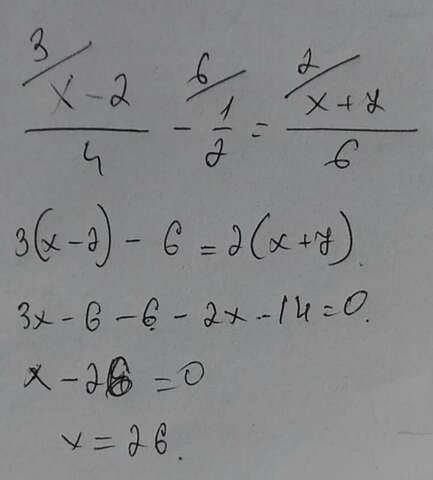 3/ 6/ 2/
x-2/4 - 1/2 = x+7/6
3(x-2) - 6 = 2(x+7).
3x-6-6-2x-14=0.
x-26=0
x=26.